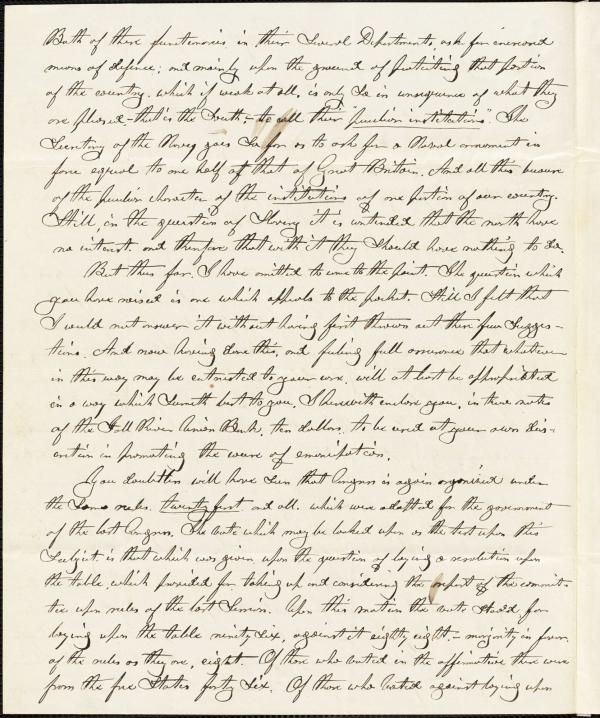 Both of these functionaries, in their several Departments, ask for increased
means of defence; and mainly upon the ground of protecting that portion
of the country, which if weak at all, is only so in consequence of what they
are pleased - that's the truth - to call their "peculiar institutions". The
Secretary of the Navy goes so far as to ask for a Naval armament in
force equal to one half of that of Great Britain. And all this because
of the peculiar character of the institutions of one portion of our country.
Still, in the question of Slavery it is contended that the north have
no interest and therefore that with it they should have nothing to do.
But thus far, I have omitted to come to the point. The question which
you have raised is one which appeals to the pocket. Still I felt that
I would not answer it without having first thrown out these few sugges-
tions. And now having done this, and feeling full assurance that whatever
in this way may be entrusted to your care, will at least be appropriated
in a way which seemeth best to you, I herewith enclose you, in three notes
of the Fall River Union Bank, ten dollars, to be used at your own dis-
cretion in promoting the cause of emancipation.
You doubtless will have seen that Congress is again organized under
the same rules, twenty first and all, which were adopted for the government
of the last Congress. The vote which may be looked upon as the test upon this
subject is that which was given upon the question of laying a resolution upon
the table, which provided for taking up and considering the report of the commit-
tee upon rules of the last Session. Upon this motion the vote stood for
laying upon the table ninety six, against it eighty eight. - majority in favor
of the rules as they are, eight. Of those who voted in the affirmative there were
from the free States forty six. Of those who voted against laying upon